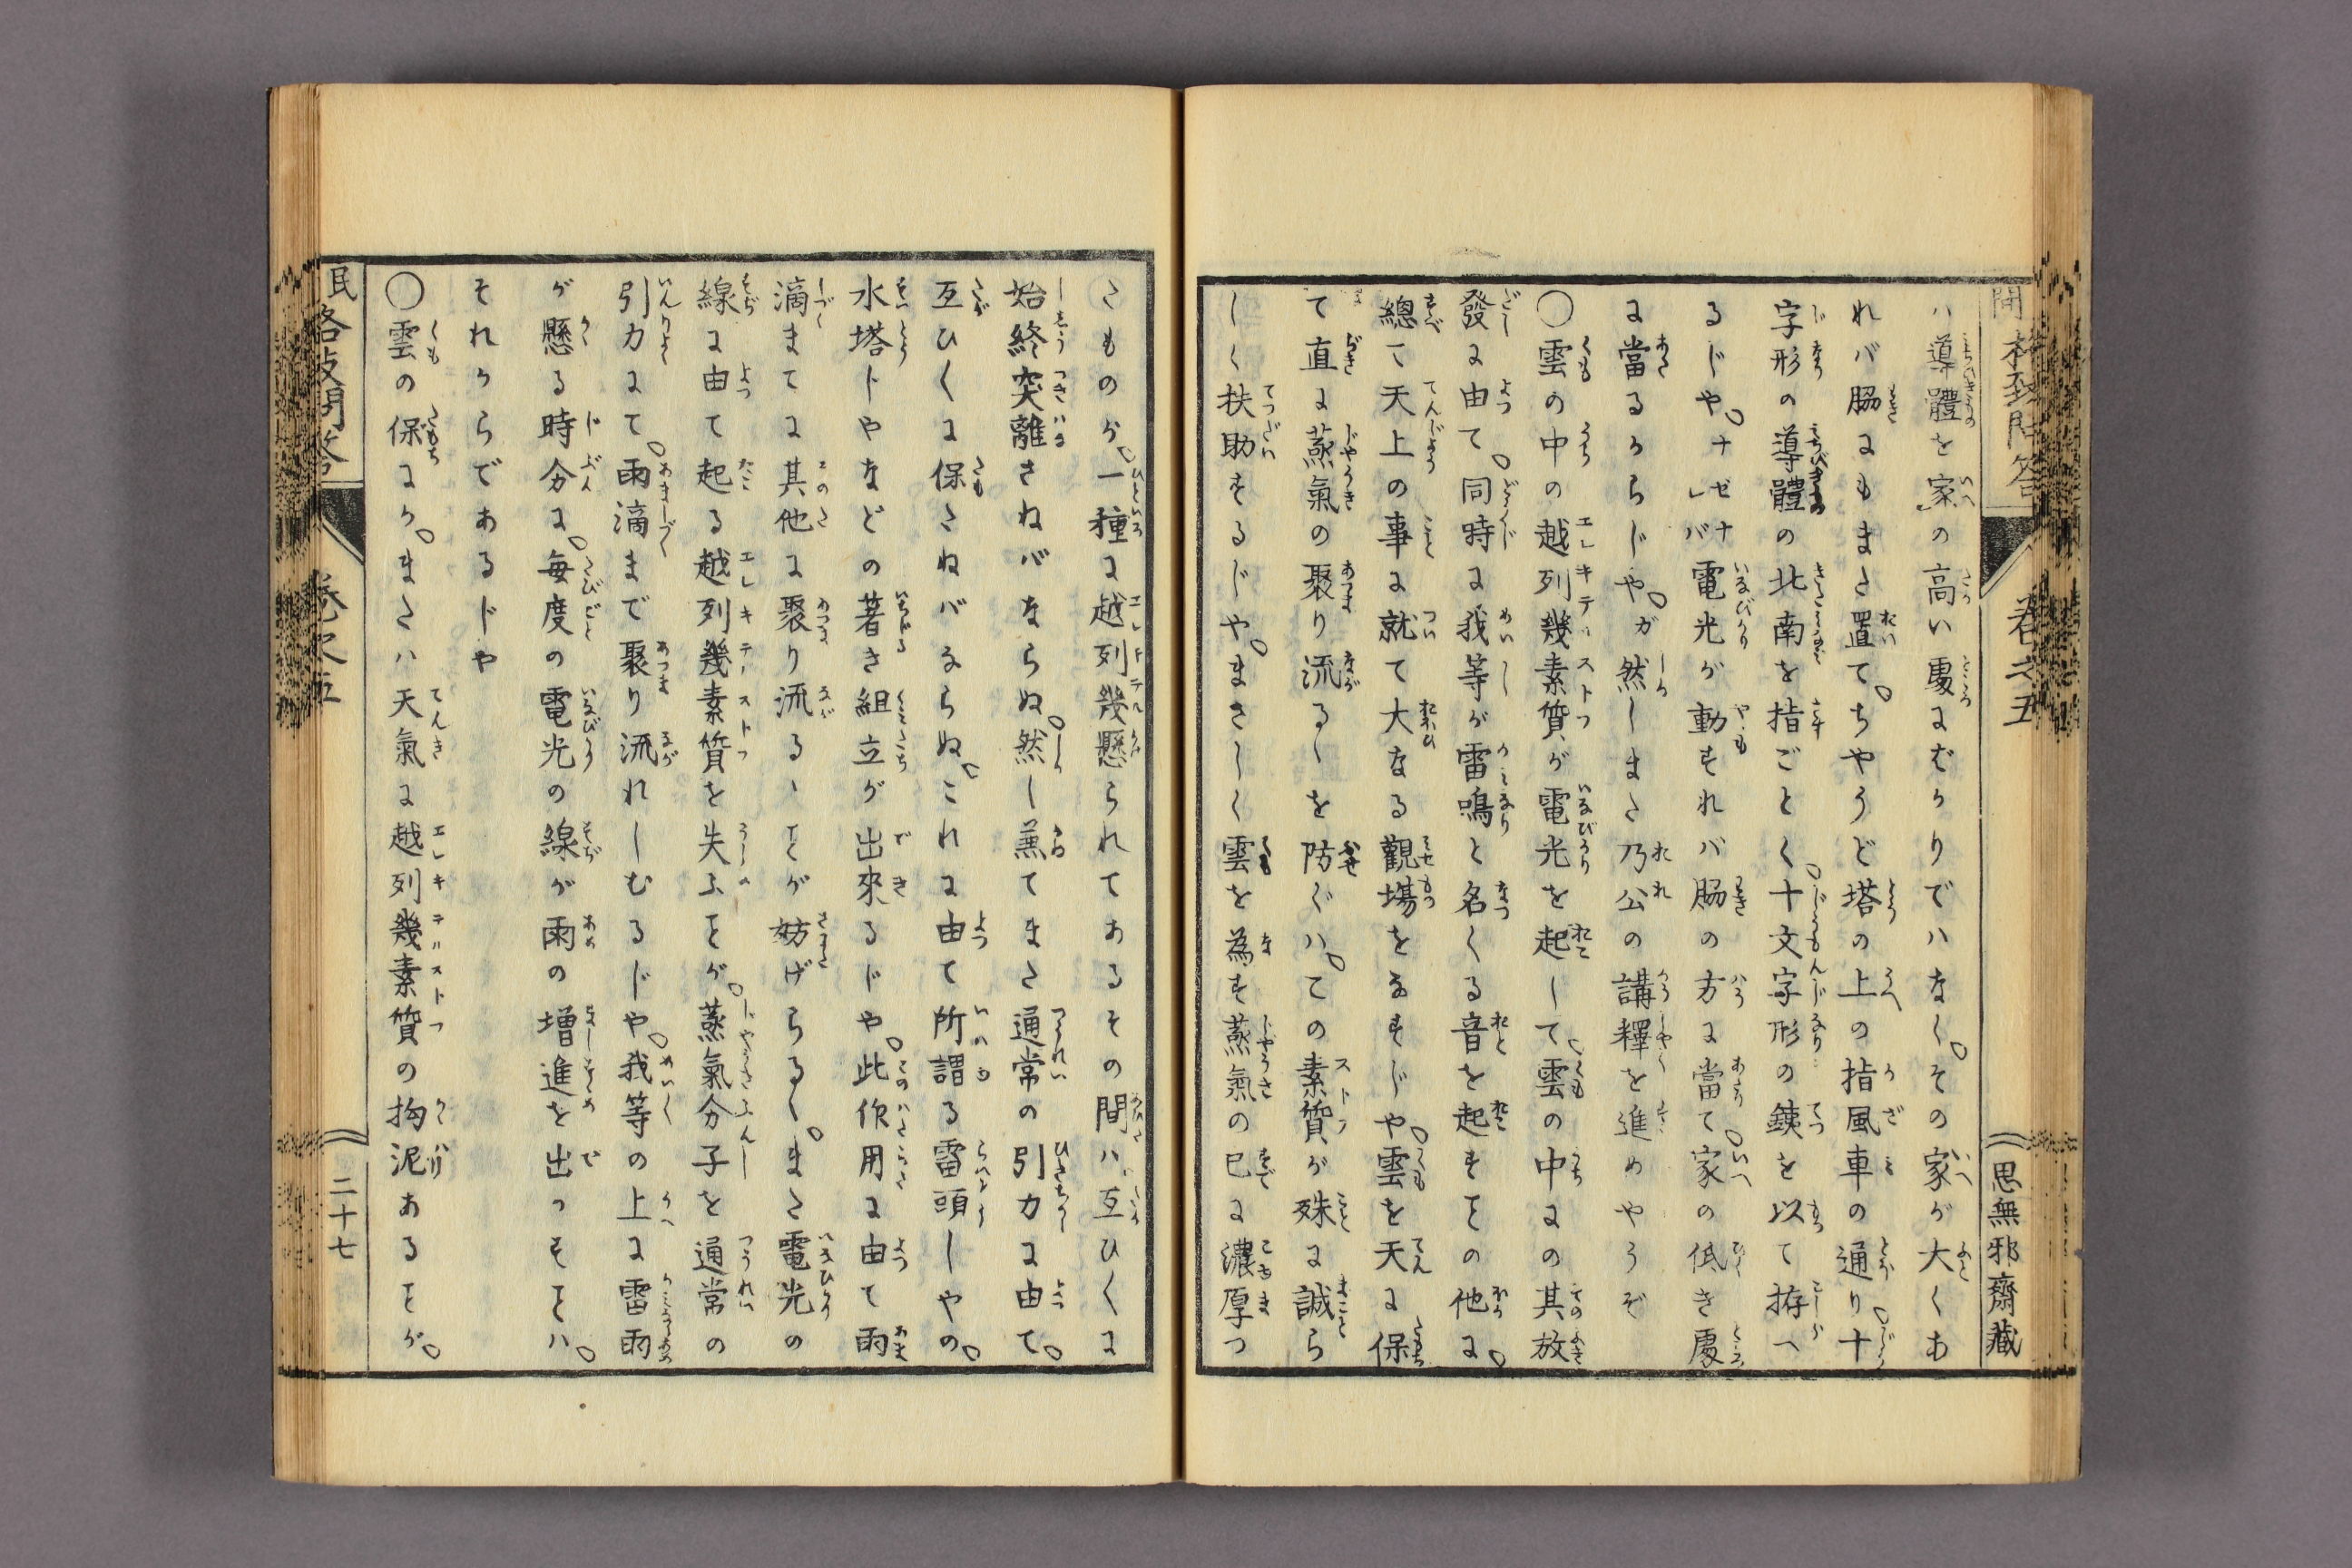 格致問答
卷之五
思無邪齋藏
ハ導體を家の高い處にむかりでハなく。その家が大くあ
れバ脇にもまた置て。ちやうど塔の上の指風車の通り。十
字形の導體の北南を指ごとく。十文字形の銕を以て拵へ
るじや。ナゼナレバ電光が動もそれバ脇の方に當て。家の低き處
に當るからじや。ガ然しまた乃公の講釋を進めやうぞ
〇雲の中の越列幾素質が電光を起して。雲の中にの其放
發に由て。同時に我等が雷鳴と名くる音を起すその他に。
總て天上の事に就て大なる觀場をなすじや。雲を天に保
て直に蒸氣の聚り流るゝを防ぐハ。この素質が殊に誠ら
しく扶助をるじや。まさしく雲を為す蒸氣の已に濃厚つ
たものが。一種に越列幾懸られてあるその間ハ。互ひくに
始終突離さねバならぬ。然し兼てまた通常の引力に由て。
互ひくに保たねバならぬ。これに由て所謂る雷頭しやの。
水塔トやなどの著き組立が出來るじや。此作用に由て雨
滴まてに其他に聚り流るゝとが妨げらるく。また電光の
線に由て起る越列幾素質を失ふとが。蒸氣分子を通常の
引力にて。雨滴まで聚り流れしむるじや。我等の上に雷雨
が懸る時分に。毎度の電光の線が雨の増進を出つそとハ。
それからであるじや
〇雲の保にか。またハ天氣に越列幾素質の拘泥あるとが。
格致問答
卷之五
二十七